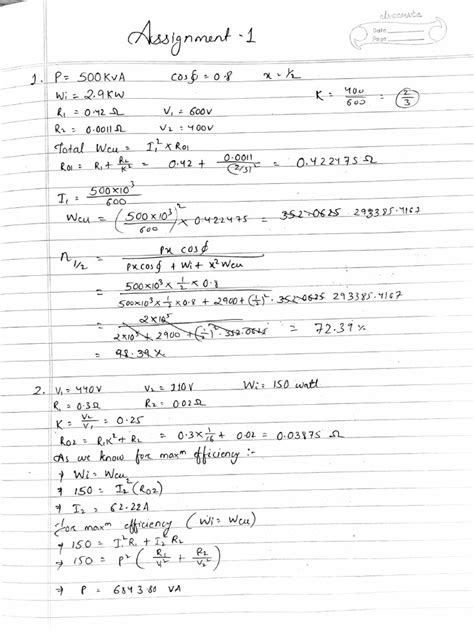 classmate
Date
Page
Assignment - 1
1. P = 500KVA cosϕ = 0.8 x = 1/2
Wi = 2.9KW K = 400/600 = (2/3)
R1 = 0.42 Ω V1 = 600V
R2 = 0.0011 Ω V2 = 400V
Total Wcu = I1² × R01
R01 = R1 + R2/K² = 0.42 + 0.0011/(2/3)² = 0.422475 Ω
I1 = 500×10³/600
Wcu = (500×10³/600)² × 0.422475 = 352.0625 293385.4167
η1/2 = Px cosϕ / Px cosϕ + Wi + x² Wcu
= 500×10³ × 1/2 × 0.8 / 500×10³ × 1/2 × 0.8 + 2900 + (1/2)² · 352.0625 293385.4167
= 2×10⁵ / 2×10⁵ + 2900 + (1/2)² · 352.0625 = 72.39 %
= 98.39 %
2. V1 = 440V V2 = 110V Wi = 150 watt
R1 = 0.3Ω R2 = 0.02Ω
K = V2/V1 = 0.25
R02 = R1K² + R2 = 0.3 × 1/16 + 0.02 = 0.03875 Ω
As we know for maxm efficiency :-
→ Wi = Wcu
→ 150 = I2² (R02)
→ I2 = 62.22A
for maxm efficiency (Wi = Wcu)
→ 150 = I1² R1 + I2² R2
→ 150 = P² (R1/V1² + R2/V2²)
→ P = 6843.80 VA